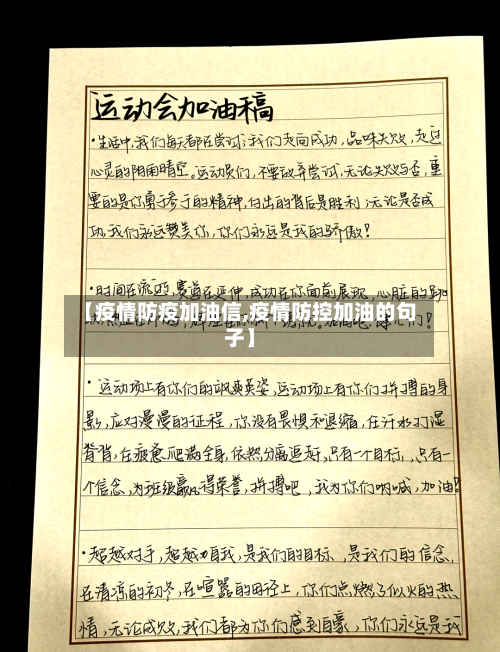 运动会加油稿
·生活中,我们每天都在尝试,我们走向成功,品味失败,走过
心灵的阴雨晴空。运动员们,不要放弃尝试,无论失败与否,重
要的是你勇于参于的精神,付出的背后是胜利,无论是否成
功,我们永远赞美你,你们永远是我的骄傲!
·时间在流逝,赛道在延伸,成功在你面前展现,心脏的跳
【疫情防疫加油信,疫情防控加油的句
子】
·运动场上有你们的飒爽英姿,运动场上有你们拼搏的身
影,应对漫漫的征程,你没有畏惧和退缩,任汗水打湿
脊背,任疲惫爬满全身,依然分离追赶,只有一个目标,只有一
个信念,为班级赢得荣誉,拼搏吧,我为你们呐喊,加油!
·超越对手,超越自我,是我们的目标,是我们的信念,
在清凉的初冬,在喧嚣的田径上,你们点燃了似火的热
情,无论成败,我们都为你们感到自豪,你们永远是我